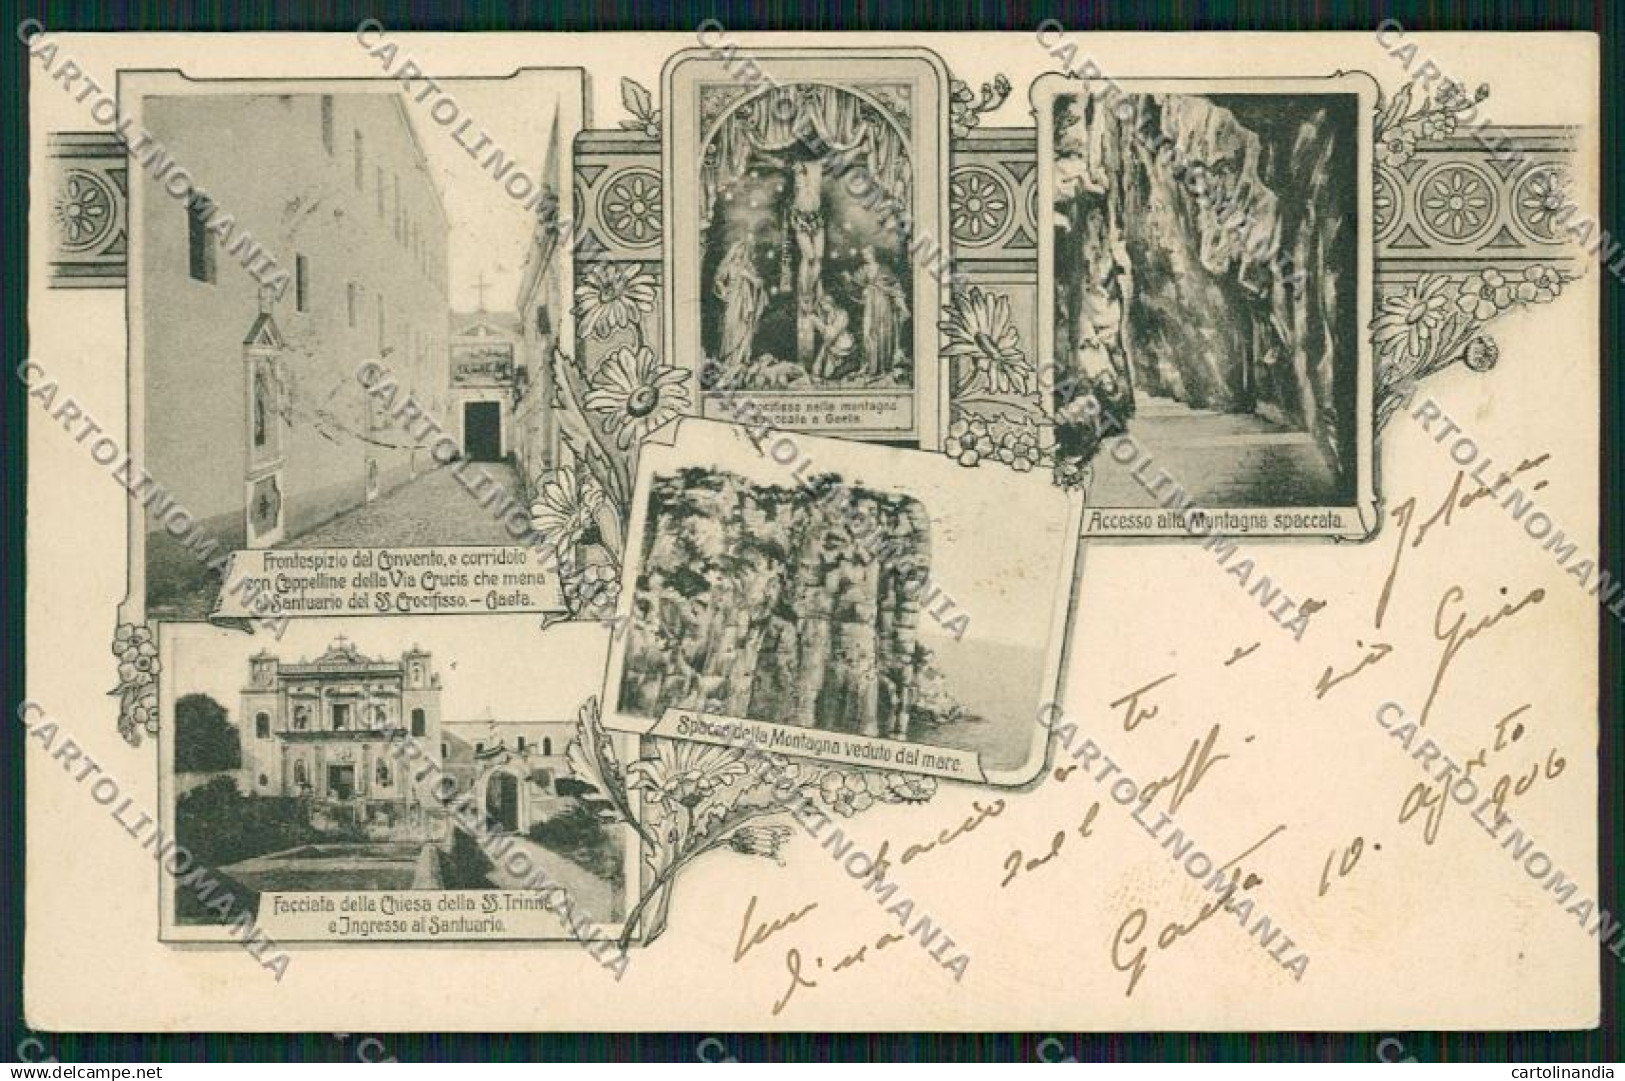 Frontespizio del Convento, e corridoio
con Cappelline della Via Crucis che mena
al Santuario del SS. Crocifisso. – Gaeta.
Crocifisso nella montagna
a Gaeta.
Accesso alla Montagna spaccata.
Spacco della Montagna veduto dal mare.
Facciata della Chiesa della SS. Trinità
e Ingresso al Santuario.
Un bacio a te e a
Gaeta 10. Agosto 906
CARTOLINOMANIA
cartolinandia